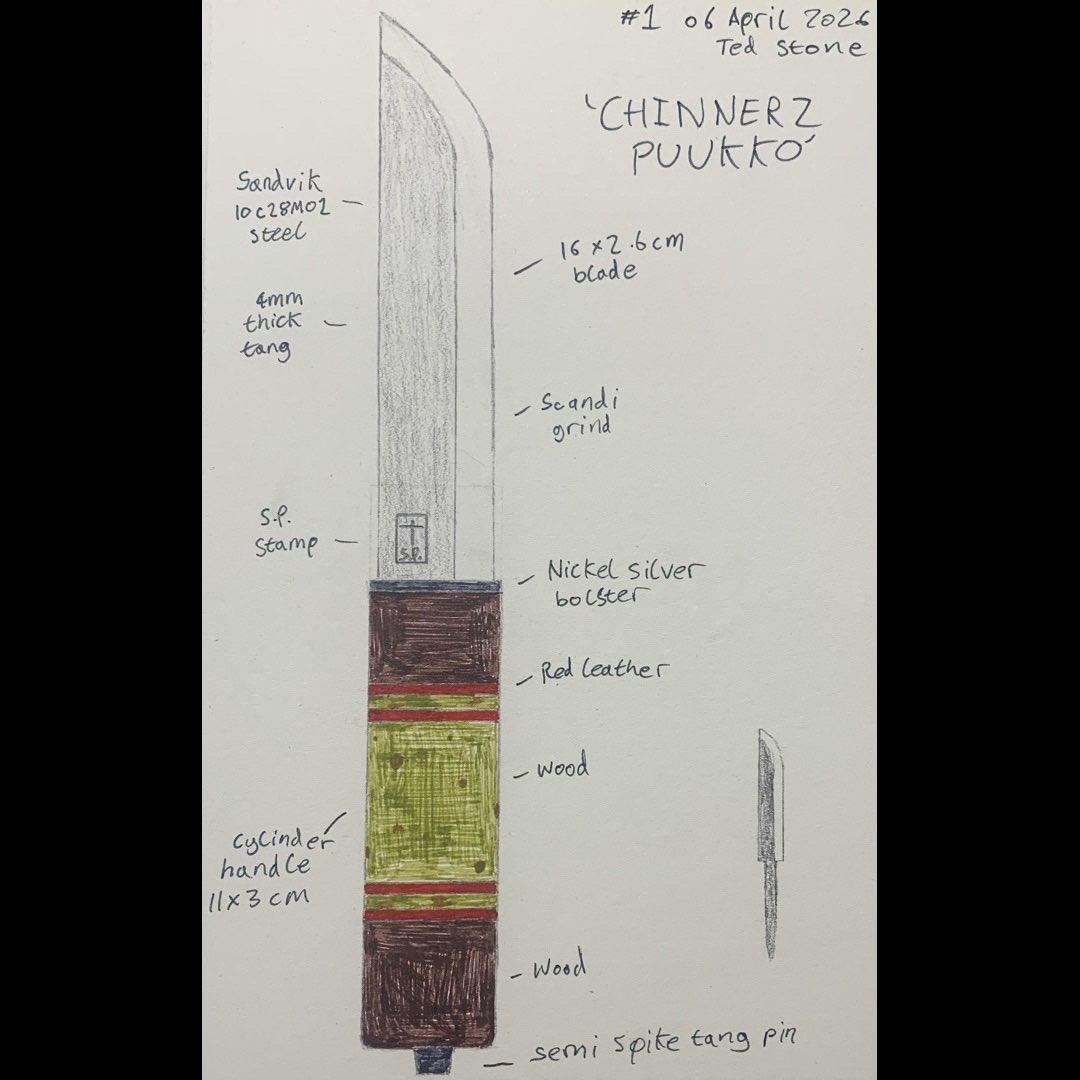 #1 06 April 2026
Ted Stone
'CHINNERZ
PUUKKO'
Sandvik
10C28MO2
steel
16 x 2.6cm
blade
4mm
thick
tang
Scandi
grind
S.P.
stamp
S.P.
Nickel silver
bolster
Red leather
wood
cylinder
handle
11x3 cm
Wood
semi spike tang pin